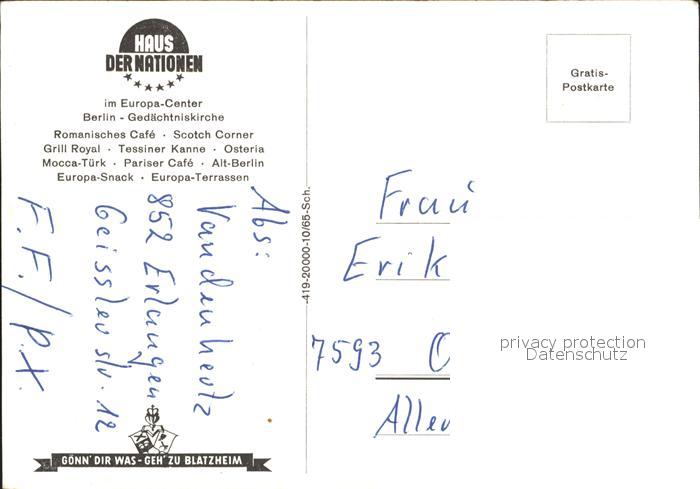 HAUS
DER NATIONEN
im Europa-Center
Berlin - Gedächtniskirche
Romanisches Café · Scotch Corner
Grill Royal · Tessiner Kanne · Osteria
Mocca-Türk · Pariser Café · Alt-Berlin
Europa-Snack · Europa-Terrassen
Abs:
Vandenhertz
852 Erlangen
Geisslerstr. 12
F.F./P.X.
GÖNN' DIR WAS - GEH' ZU BLATZHEIM
419-20000-10/65-Sch.
Gratis-
Postkarte
Frau
Erik
7593 O
Aller
privacy protection
Datenschutz